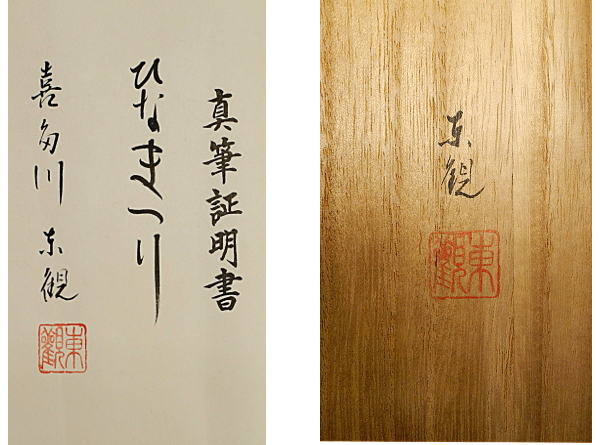 真筆証明書
ひなまつり
喜多川 東観
東觀
東観
東觀